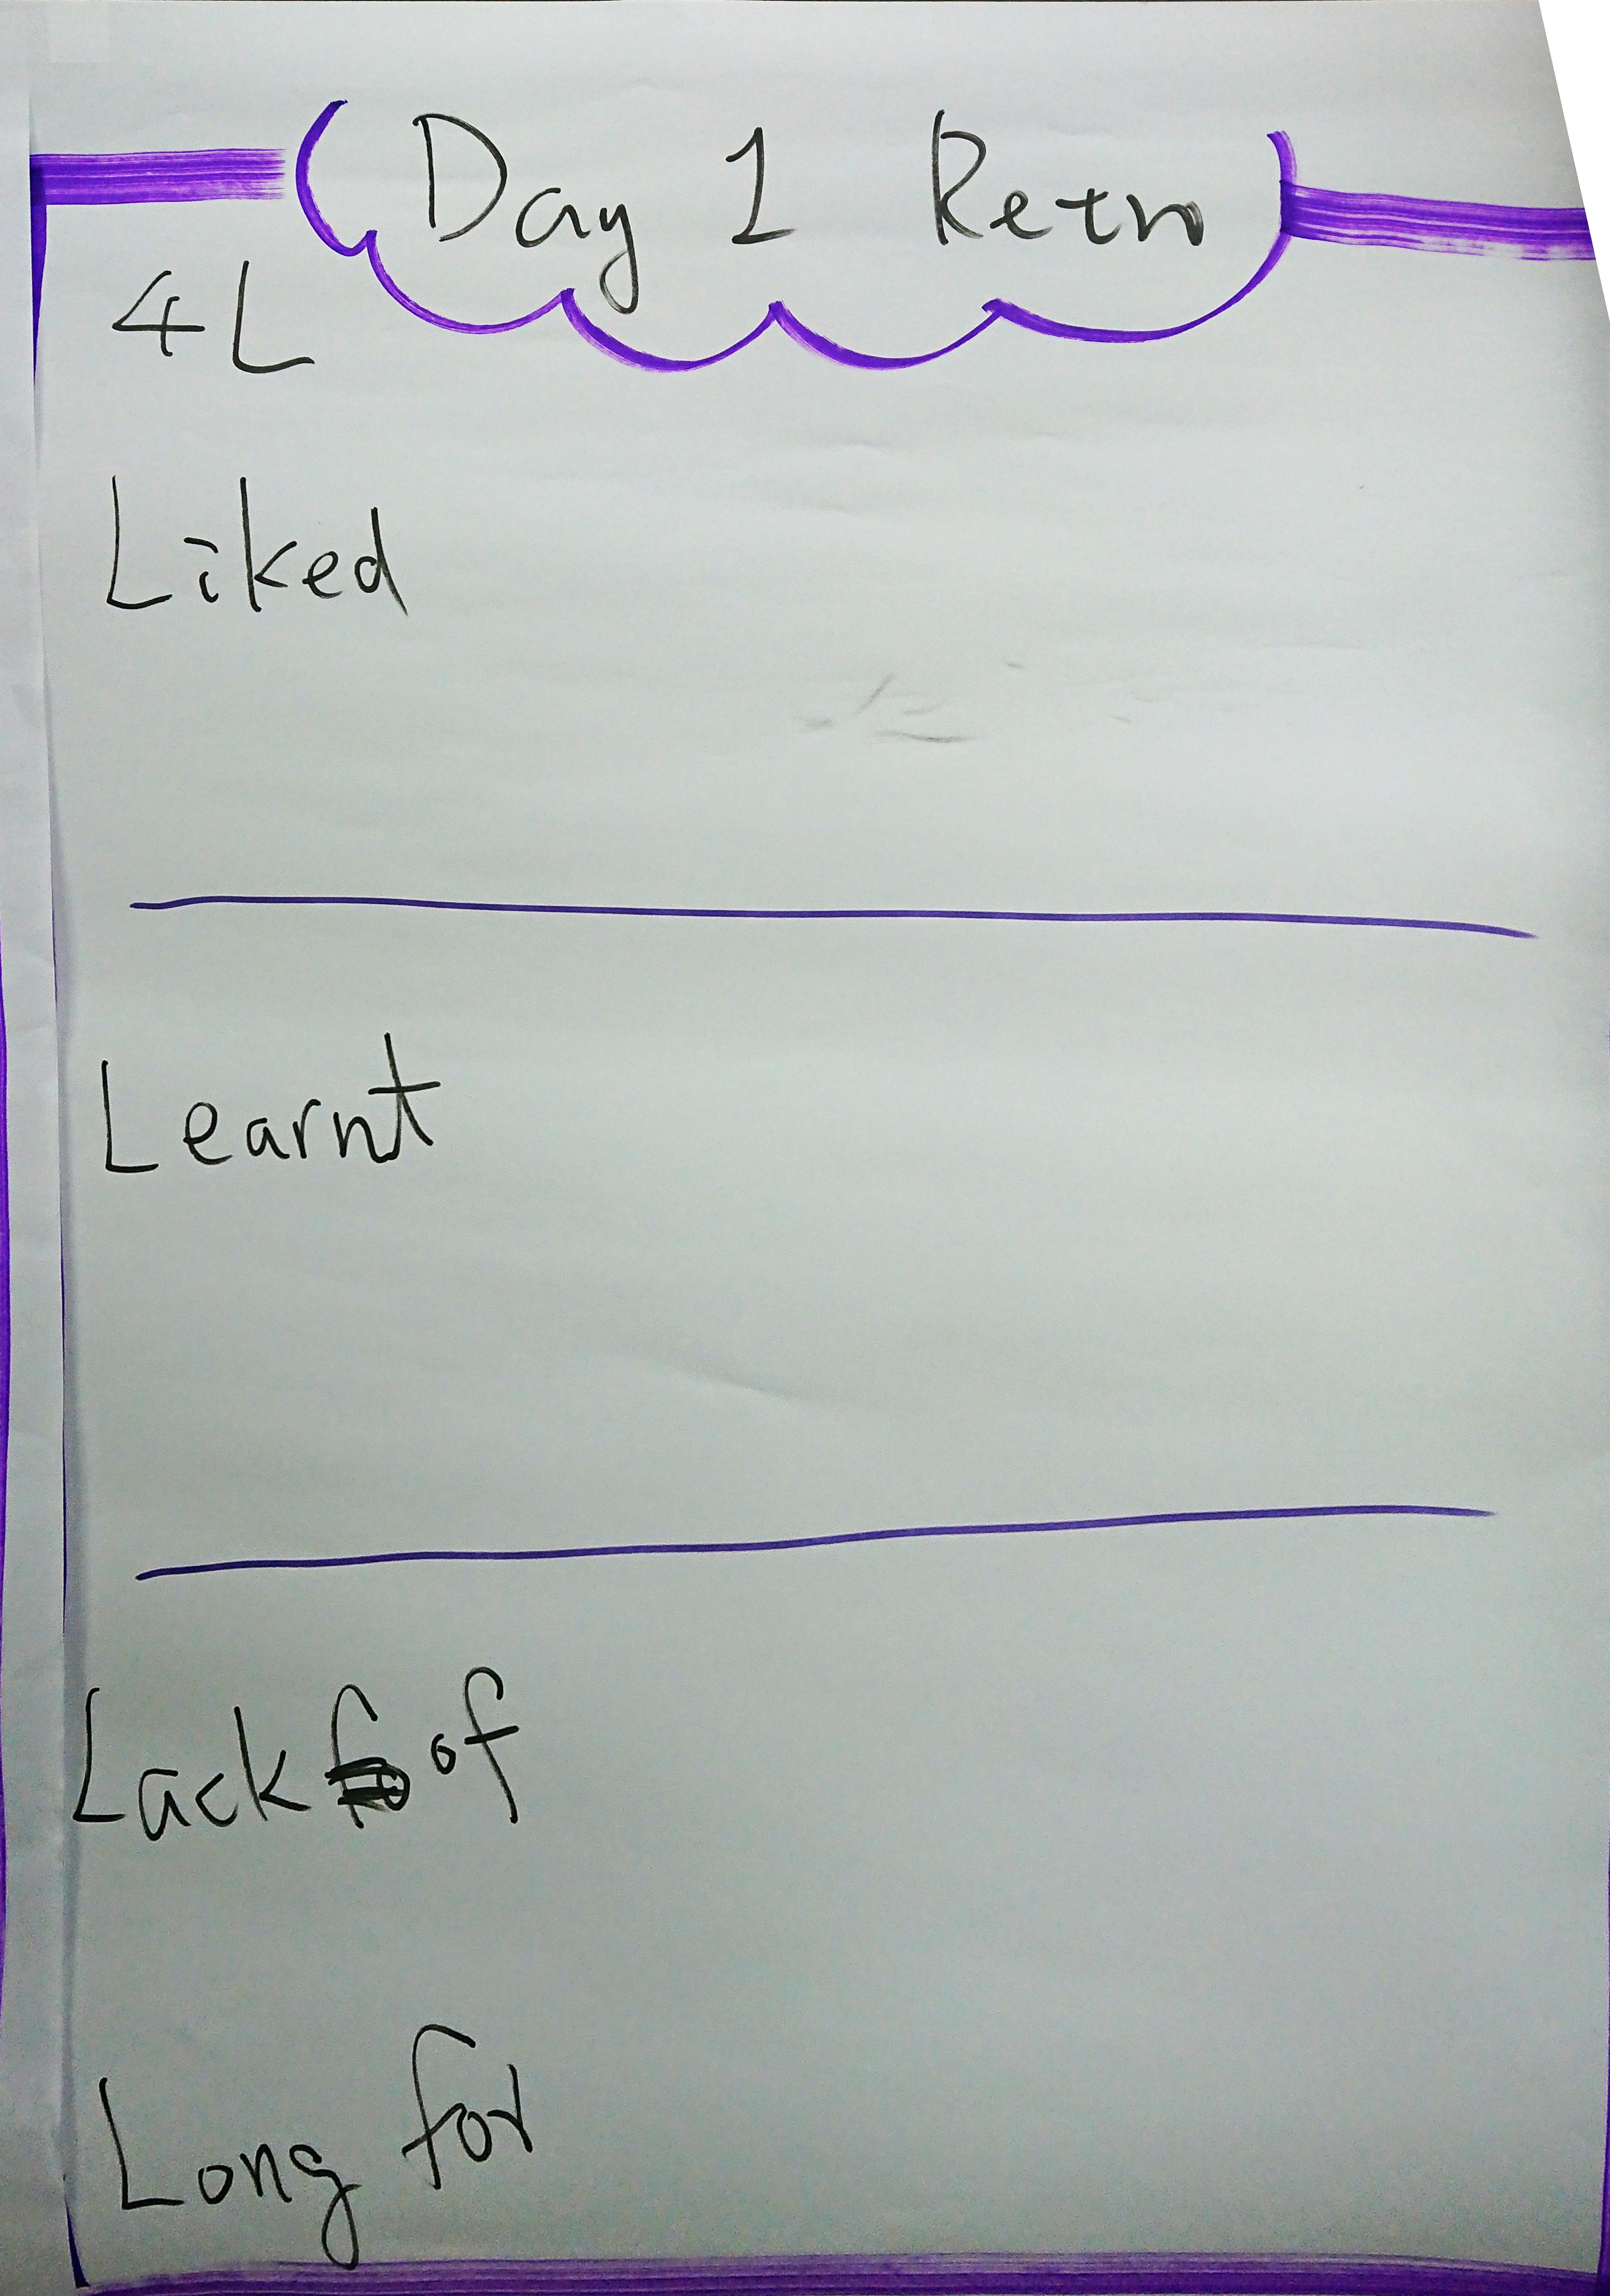 Day 1 Retro
4L
Liked
Learnt
Lack of
Long for